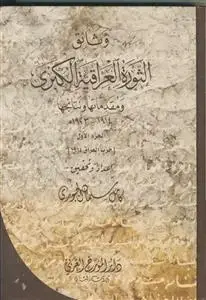 وثائق
الثورة العراقية الكبرى
ومقدماتها ونتائجها
١٩١٤ - ١٩٢٣م
الجزء الأول
إعداد وتحقيق
كامل سلمان الجبوري
دار المؤرخ العربي